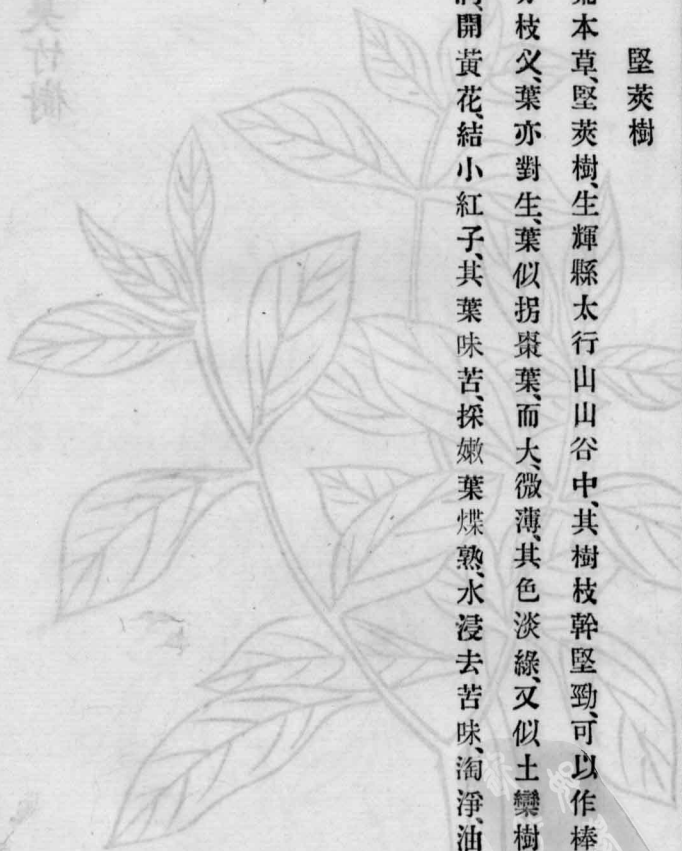 堅莢樹
本草、堅莢樹、生輝縣太行山山谷中、其樹枝幹堅勁、可以作棒
枝父、葉亦對生、葉似拐棗葉、而大、微薄、其色淡綠、又似土欒樹
開黃花、結小紅子、其葉味苦、採嫩葉煠熟、水浸去苦味、淘淨、油